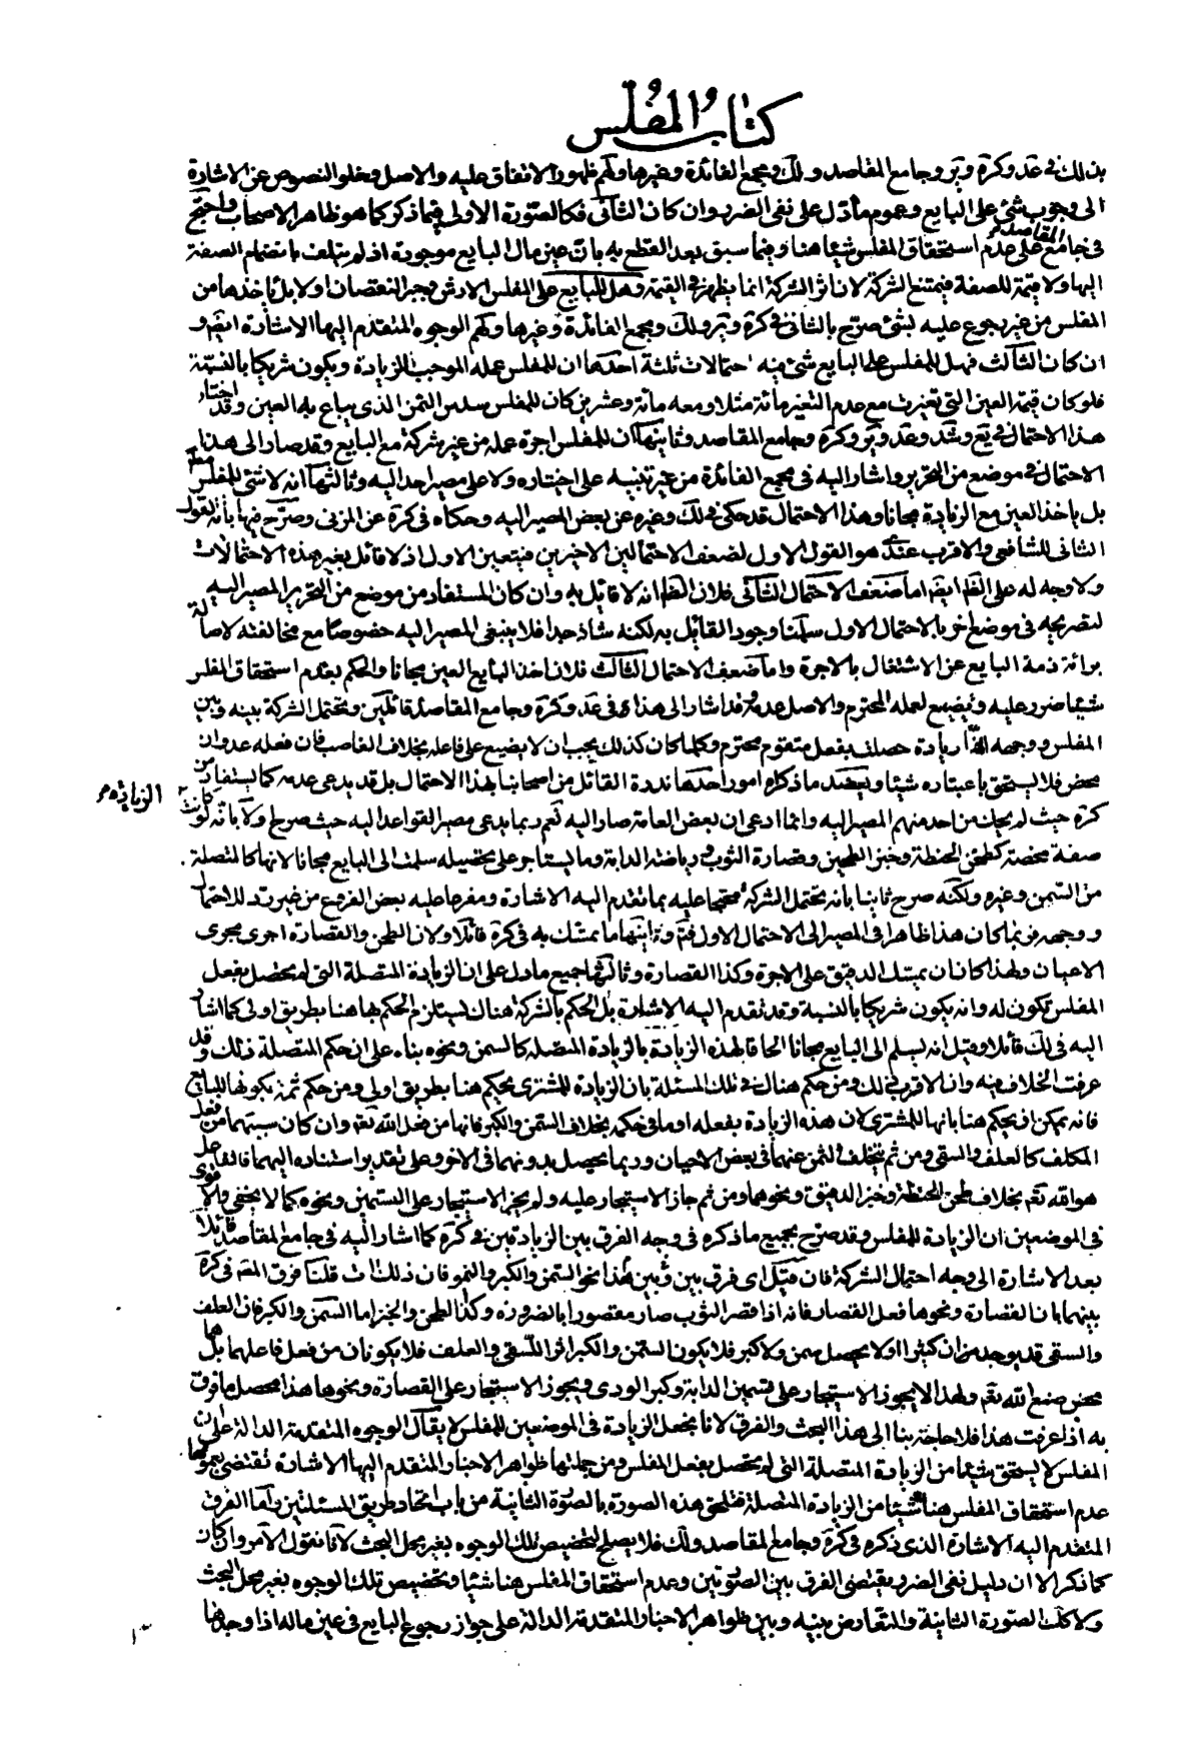 كتاب المفلس
بذلك فى عد وكرة وير وجامع المقاصد ولك ومجمع الفائدة وغيرها ولهم ظهور الاتفاق عليه والاصل وخلو النصوص عن الاشارة
الى وجوب شئ على البايع وعموم ما دل على نفى الضرر وان كان الثانى فكالصورة الاولى فيما ذكر كما هو ظاهر الاصحاب واحتج
فى جامع المقاصد على عدم استحقاق المفلس شيئا هنا وفيما سبق بعد القطع به بان عين مال البايع موجودة اذ لم يتلف بانضمام الصفة
اليها ولا قيمة للصفة فيمتنع الشركة لان اثر الشركة انما يظهر فى القيمة وهل للبايع على المفلس الارش وجبر النقصان او لا بل ياخذها من
المفلس من غير رجوع عليه بشئ صرح بالثانى فى كرة وير ولك ومجمع الفائدة وغيرها ولهم الوجوه المتقدم اليها الاشارة ايضا و
ان كان الثالث فهل للمفلس على البايع شئ فيه احتمالات ثلثة احدها ان للمفلس عمله الموجب للزيادة ويكون شريكا بالنسبة
فلو كان قيمة العين التى تغيرت مع عدم التغير مائة مثلا ومعه مائة وعشرين كان للمفلس سدس الثمن الذى يباع به العين وقد اختار
هذا الاحتمال فى يع وشد وعد وير وكرة وجامع المقاصد وثانيها ان للمفلس اجرة عمله من غير شركة مع البايع وقد صار الى هذا
الاحتمال فى موضع من التحرير واشار اليه فى مجمع الفائدة من غير تنبيه على اختياره ولا على مصير احد اليه وثالثها انه لا شئ للمفلس
بل ياخذ العين مع الزيادة مجانا وهذا الاحتمال قد حكى فى لك وغيره عن بعض المصير اليه وحكاه فى كرة عن المزنى وصرح فيها بانه القول
الثانى للشافعى والاقرب عندى هو القول الاول لضعف الاحتمالين الاخيرين فيتعين الاول اذ لا قائل بغير هذه الاحتمالات
ولا وجه له على الظ ايضا اما ضعف الاحتمال الثانى فلان الظ انه لا قايل به وان كان المستفاد من موضع من التحرير المصير اليه
لتصريحه فى موضع اخر بالاحتمال الاول سلمنا وجود القائل به لكنه شاذ جدا فلا ينبغى المصير اليه خصوصا مع مخالفته لاصالة
برائة ذمة البايع عن الاشتغال بالاجرة واما ضعف الاحتمال الثالث فلان اخذ البايع العين مجانا والحكم بعدم استحقاق المفلس
شيئا ضرر عليه وتضييع لعمله المحترم والاصل عدمه وقد اشار الى هذا فى عد وكرة وجامع المقاصد قائلين ويحتمل الشركة بينه وبين
المفلس ووجهه انها زيادة حصلت بفعل متقوم محترم وكلما كان كذلك يجب ان لا يضيع على فاعله بخلاف الغاصب فان فعله عدوان
محض فلا يستحق باعتباره شيئا ويعضد ما ذكره امور احدها ندرة القائل من اصحابنا بهذا الاحتمال بل قد يدعى عدمه كما يستفاد من
كرة حيث لم يحك من احد منهم المصير اليه وانما ادعى ان بعض العامة صار اليه نعم ربما يدعى مصير القواعد اليه حيث صرح اولا بانه لو كانت الزيادة
صفة محضة كطحن الحنطة وخبز الطحين وقصارة الثوب ورياضة الدابة وما يستاجر على تحصيله سلمت الى البايع مجانا لانها كالمتصلة
من السمن وغيره ولكنه صرح ثانيا بانه يحتمل الشركة محتجا عليه بما تقدم اليه الاشارة ومفرعا عليه بعض الفروع من غير رد للاحتمال
ووجهه فربما كان هذا ظاهرا فى المصير الى الاحتمال الاول فتم وثانيها ما تمسك به فى كرة قائلا ولان الطحن والقصارة اجرى مجرى
الاعيان ولهذا كان ان يمسك الدقيق على الاجرة وكذا القصارة وثالثها جميع ما دل على ان الزيادة المتصلة التى لم يحصل بفعل
المفلس تكون له وانه يكون شريكا بالنسبة وقد تقدم اليه الاشارة بل الحكم بالشركة هناك يستلزم الحكم بها هنا بطريق اولى كما اشار
اليه فى لك قائلا وقيل انه يسلم الى البايع مجانا الحاقا لهذه الزيادة بالزيادة المتصلة كالسمن ونحوه بناء على ان حكم المتصلة ذلك وقد
عرفت الخلاف فيه وان الاقرب فى ذلك ومن حكم هناك فى تلك المسئلة بان الزيادة للمشترى يحكم هنا بطريق اولى ومن حكم ثمة بكونها للبايع
فانه يمكن ان يحكم هنا بانها للمشترى لان هذه الزيادة بفعله او ما فى حكمه بخلاف السمن والكبر فانها من فعل الله تعم وان كان سببهما من فعل
المكلف كالعلف والسقى ومن ثم يتخلف الثمن عنهما فى بعض الاحيان وربما يحصل بدونهما فى الاخر وعلى تقدير استناده اليهما فالفاعل
هو الله تعم بخلاف طحن الحنطة وخبز الدقيق ونحوهما ومن ثم جاز الاستيجار عليه ولم يجز الاستيجار على التسمين ونحوه كما لا يخفى والاقوى
فى الموضعين ان الزيادة للمفلس وقد صرح بجميع ما ذكره فى وجه الفرق بين الزيادتين فى كرة كما اشار اليه فى جامع المقاصد قائلا
بعد الاشارة الى وجه احتمال الشركة فان قيل اى فرق بين وبين هذا نحو السمن والكبر والنمو فان ذلك قلنا فرق المصنف فى كرة
بينهما بان القصارة ونحوها فعل القصار فانه اذا قصر الثوب صار مقصورا بالضرورة وكذا الطحن والخبز اما السمن والكبر فان العلف
والسقى قد يوجد من ان كثيرا ولا يحصل سمن ولا كبر فلا يكون السمن والكبر اثر السقى والعلف فلا يكونان من فعل فاعلهما بل
محض صنع الله تعم ولهذا لا يجوز الاستيجار على تسمين الدابة وكبر الودى ويجوز الاستيجار على القصارة ونحوها هذا محصل ما فرق
به اذا عرفت هذا فلا حاجة بنا الى هذا البحث والفرق لانا نجعل الزيادة فى الموضعين للمفلس لا يقال الوجوه المتقدمة الدالة على ان
المفلس لا يستحق شيئا من الزيادة المتصلة التى لم يحصل بفعل المفلس ومن جملتها ظواهر الاخبار المتقدم اليها الاشارة تقتضى بعمومها
عدم استحقاق المفلس هنا شيئا من الزيادة المتصلة فتلحق هذه الصورة بالصورة الثانية من باب اتحاد طريق المسئلتين واما الفرق
المتقدم اليه الاشارة الذى ذكره فى كرة وجامع المقاصد ولك فلا يصلح لتخصيص تلك الوجوه بغير محل البحث لانا نقول الامر وان كان
كما ذكر الا ان دليل نفى الضرر يقتضى الفرق بين الصورتين وعدم استحقاق المفلس هنا شيئا وتخصيص تلك الوجوه بغير محل البحث
ولا كك الصورة الثانية والتعارض بينه وبين ظواهر الاخبار المتقدمة الدالة على جواز رجوع البايع فى عين ماله اذا وجدها